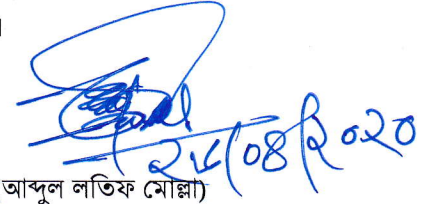 ২৮/০৪/২০২০
আব্দুল লতিফ মোল্লা)